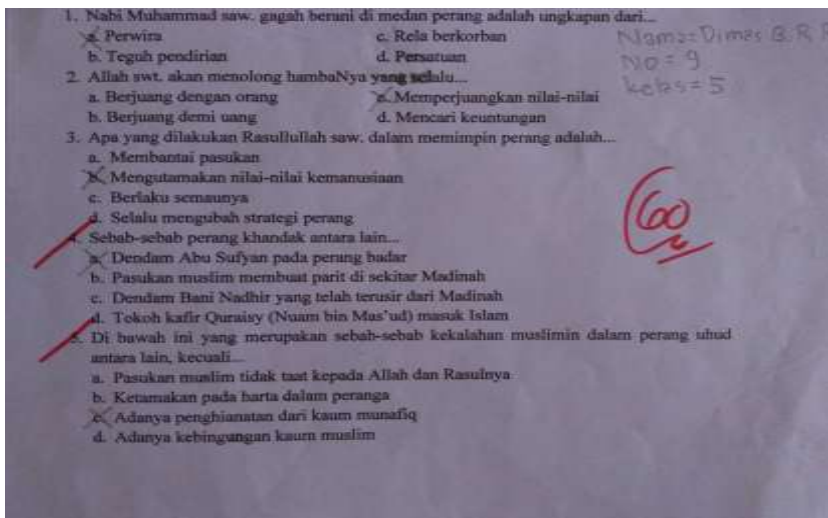 1. Nabi Muhammad saw. gagah berani di medan perang adalah ungkapan dari...
a. Perwira c. Rela berkorban
b. Teguh pendirian d. Persatuan
Nama=Dimas B.R
No = 9
kelas = 5
2. Allah swt. akan menolong hambaNya yang selalu...
a. Berjuang dengan orang c. Memperjuangkan nilai-nilai
b. Berjuang demi uang d. Mencari keuntungan
3. Apa yang dilakukan Rasullullah saw. dalam memimpin perang adalah...
a. Membantai pasukan
b. Mengutamakan nilai-nilai kemanusiaan
c. Berlaku semaunya
d. Selalu mengubah strategi perang
60
4. Sebab-sebab perang khandak antara lain...
a. Dendam Abu Sufyan pada perang badar
b. Pasukan muslim membuat parit di sekitar Madinah
c. Dendam Bani Nadhir yang telah terusir dari Madinah
d. Tokoh kafir Quraisy (Nuam bin Mas'ud) masuk Islam
5. Di bawah ini yang merupakan sebab-sebab kekalahan muslimin dalam perang uhud
antara lain, kecuali...
a. Pasukan muslim tidak taat kepada Allah dan Rasulnya
b. Ketamakan pada harta dalam peranga
c. Adanya penghianatan dari kaum munafiq
d. Adanya kebingungan kaum muslim